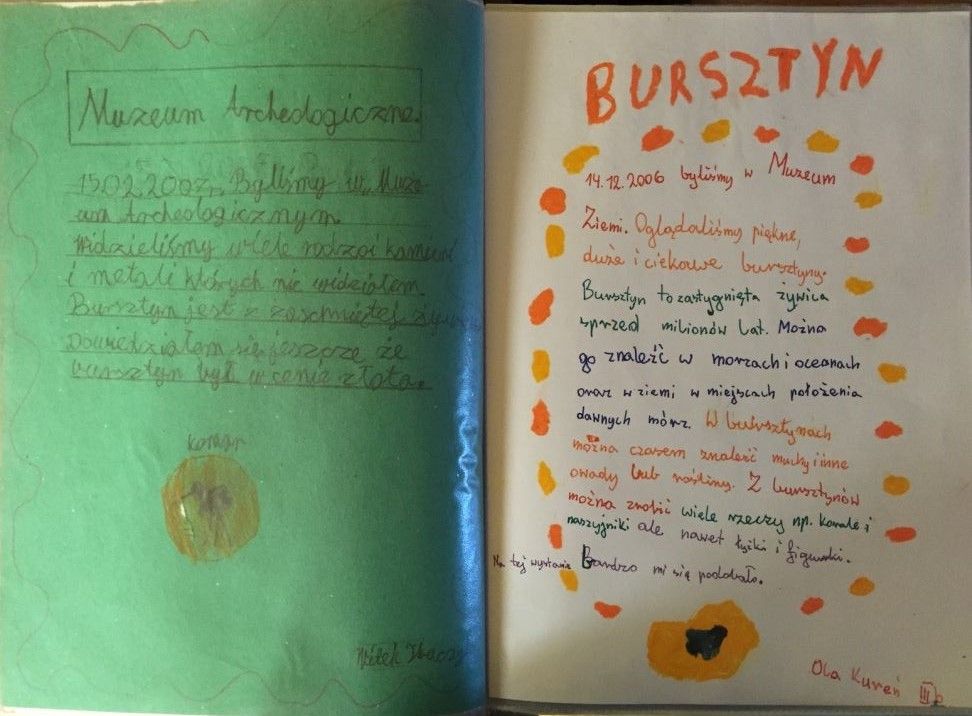 Muzeum Archeologiczne.
15.02.2007r. Byliśmy w Muze-
um Archeologicznym.
Widzieliśmy wiele rodzai kamieni
i metali których nie widziałem.
Bursztyn jest z zaschniętej
Dowiedziałem się jeszcze że
bursztyn był w cenie złota.
Witek
BURSZTYN
14.12.2006 byliśmy w Muzeum
Ziemi. Oglądaliśmy piękne,
duże i ciekawe bursztyny.
Bursztyn to zastygnięta żywica
sprzed milionów lat. Można
go znaleźć w morzach i oceanach
oraz w ziemi w miejscach położenia
dawnych mórz. W bursztynach
można czasem znaleźć muchy i inne
owady lub rośliny. Z bursztynów
można zrobić wiele rzeczy np. korale i
naszyjniki ale nawet łyżki i figurki.
Na tej wystawie Bardzo mi się podobało.
Ola Kureń III